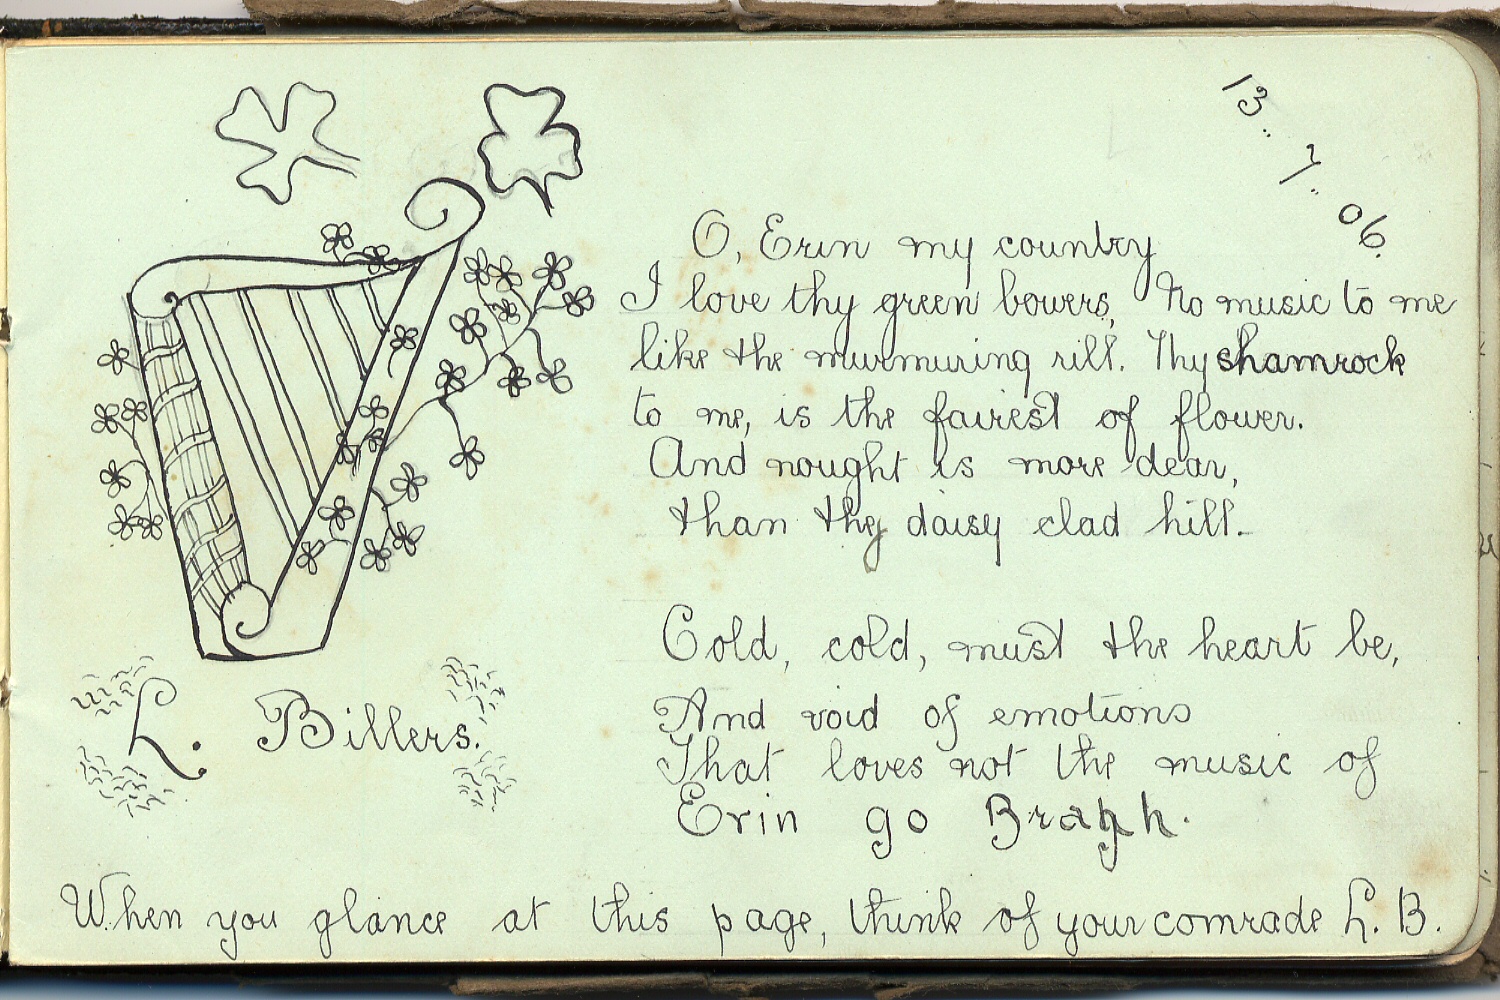 13.. 7.. 06.
O, Erin my country
I love thy green bowers, No music to me
like the murmuring rill. Thy shamrock
to me, is the fairest of flower.
And nought is more dear,
than thy daisy clad hill.
Cold, cold, must the heart be,
And void of emotions
That loves not the music of
Erin go Bragh.
L. Billers.
When you glance at this page, think of your comrade L. B.